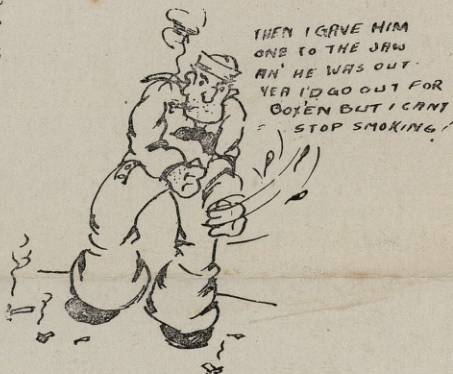 THEN I GAVE HIM
ONE TO THE JAW
AN' HE WAS OUT.
YEA I'D GO OUT FOR
BOX'EN BUT I CANT
STOP SMOKING!